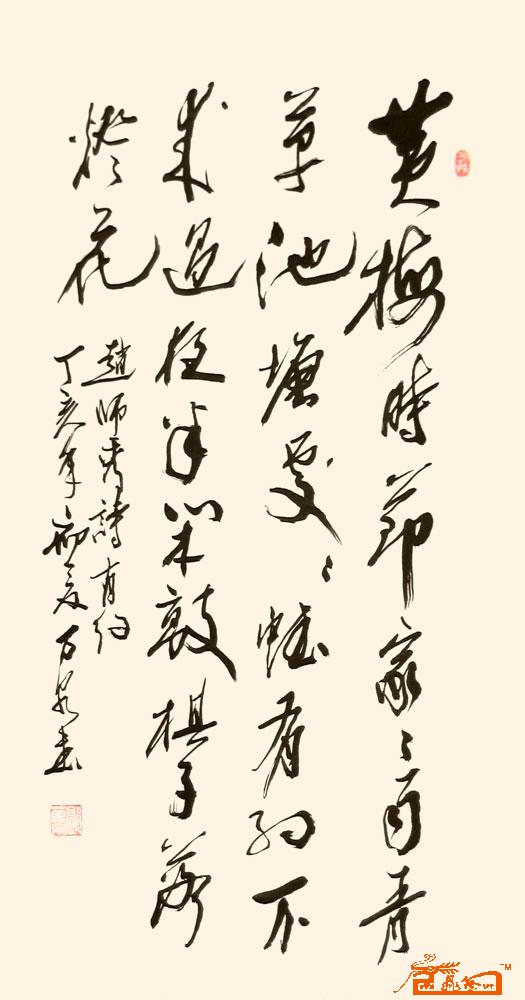 黄梅時節家〻雨青
草池塘處〻蛙有约不
来過夜半闲敲棋子落
燈花
趙師秀詩有约
丁亥年初夏万泉書